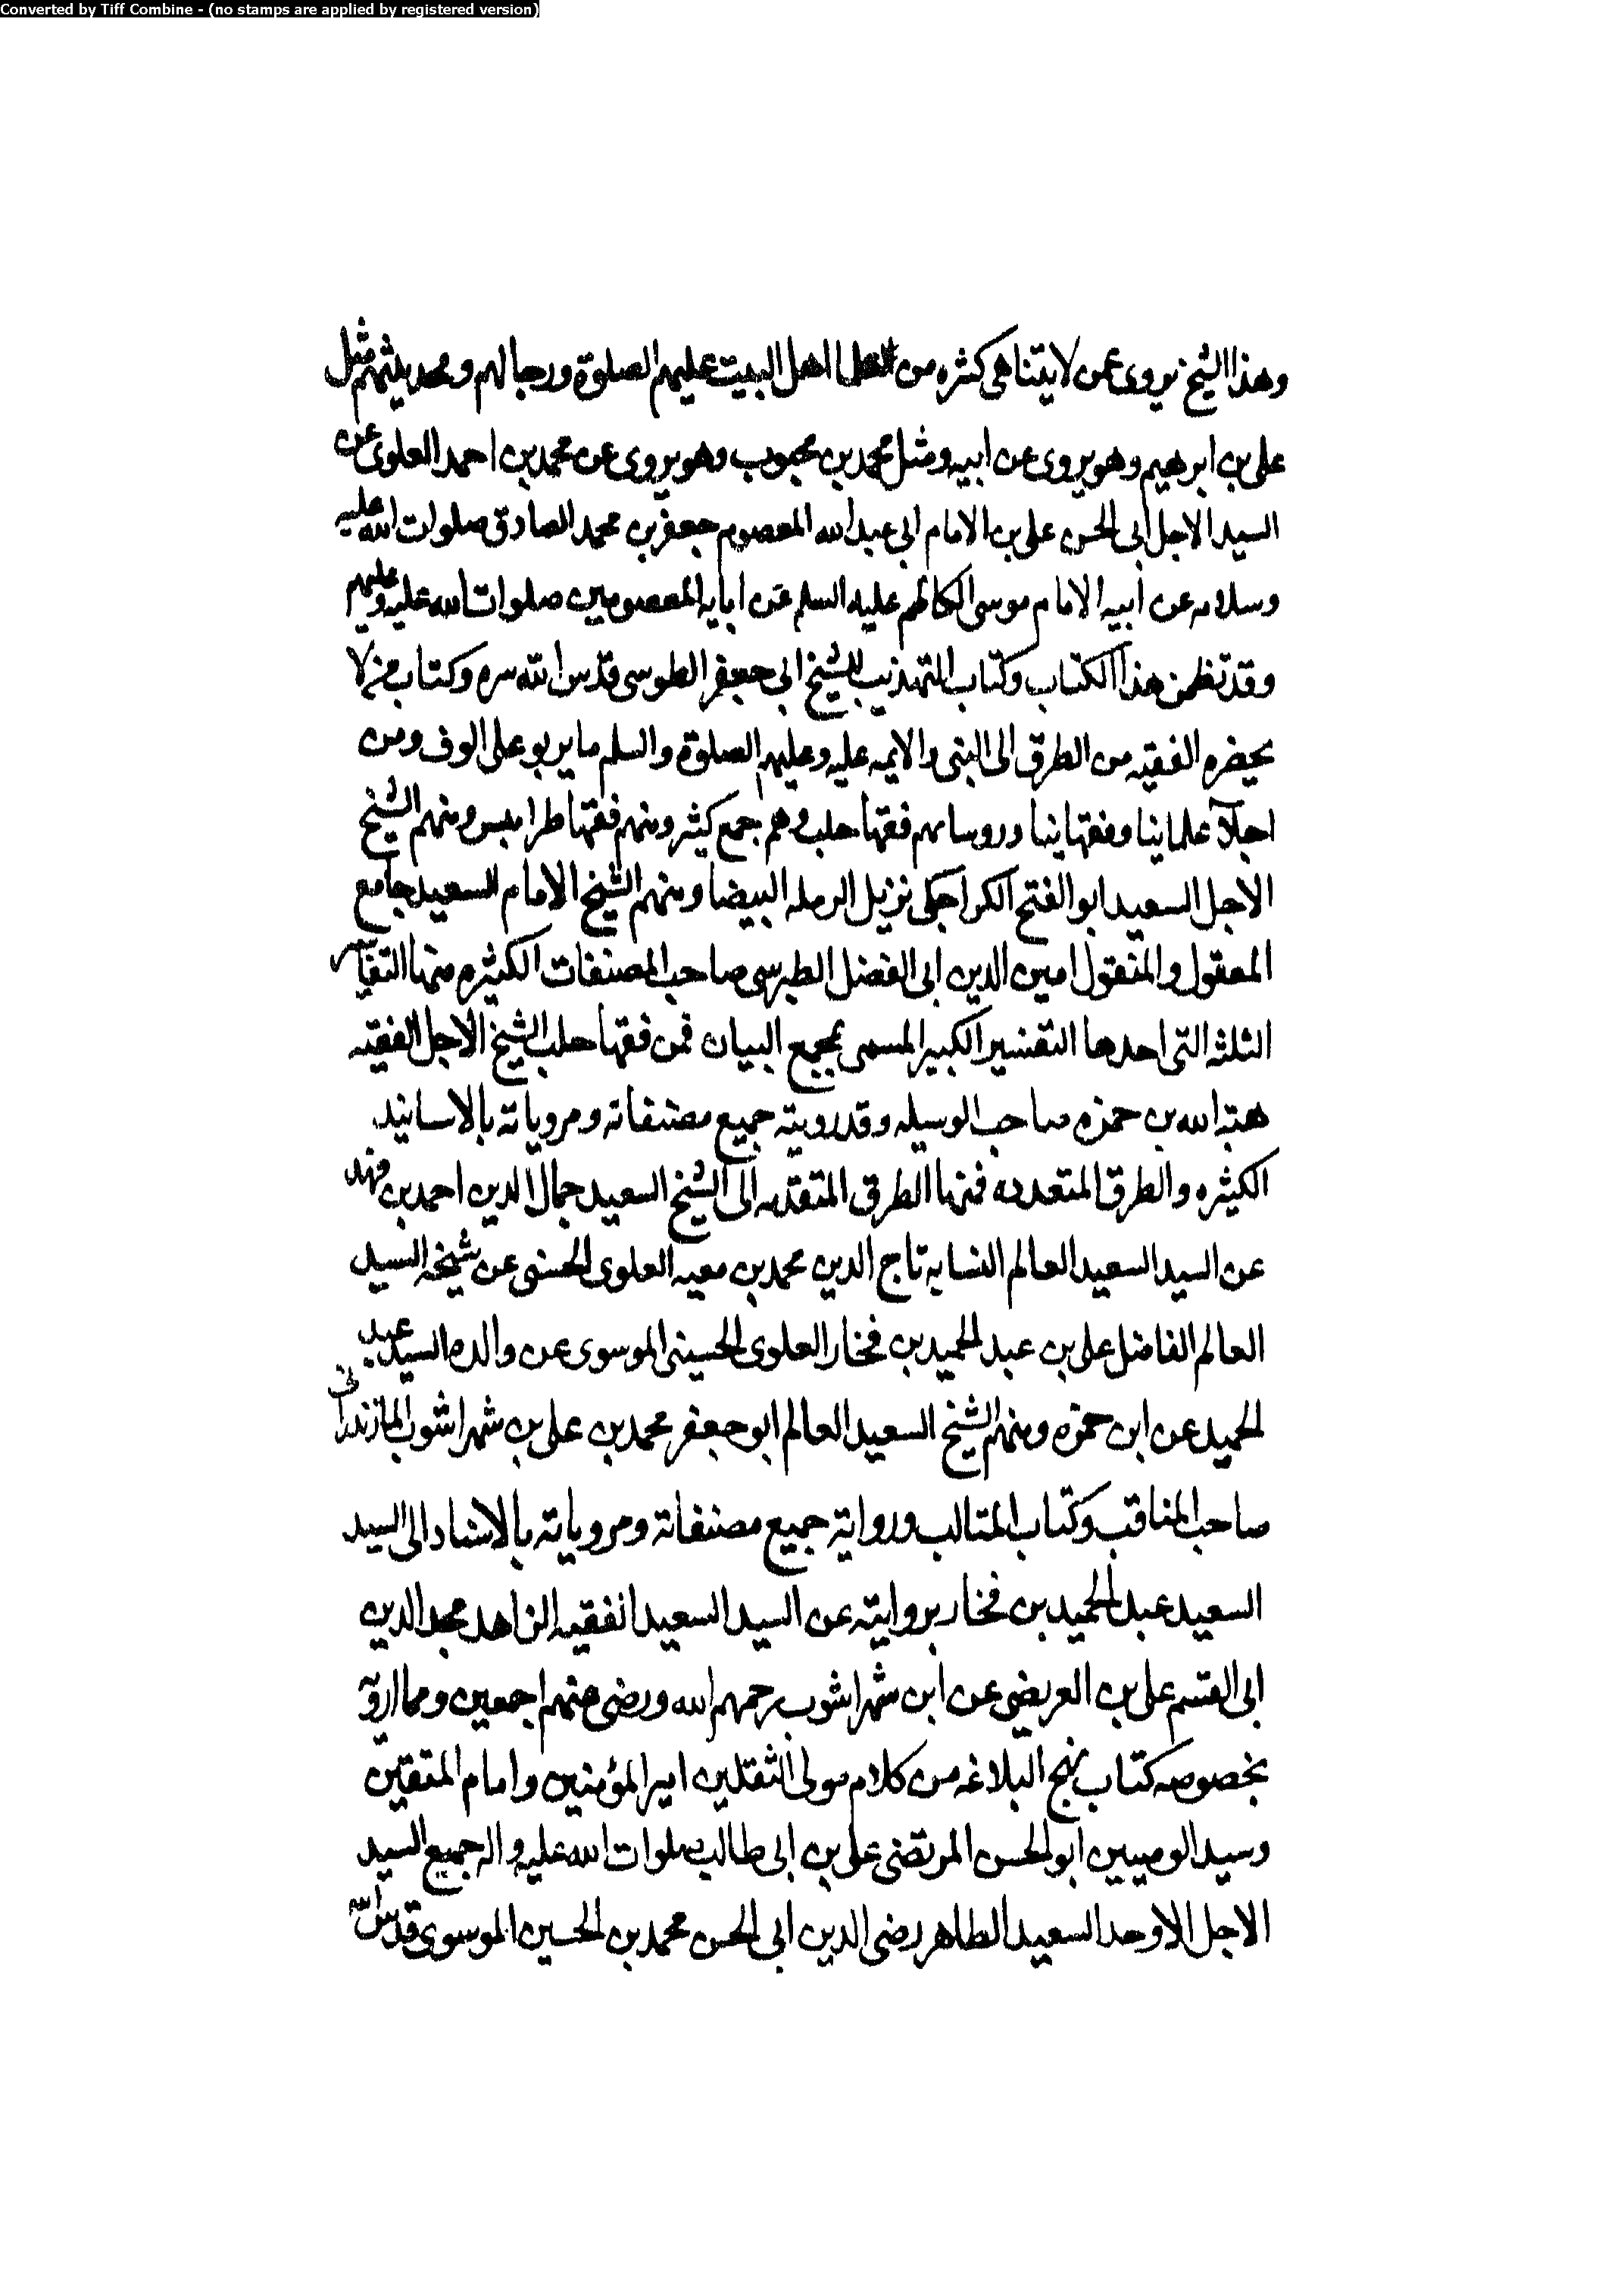 Converted by Tiff Combine - (no stamps are applied by registered version)
وهذا الشيخ يروى عمن لا يتناهى كثره من اهل البيت عليهم الصلوة ورجالهم ومحدثيهم مثل
على بن ابرهيم وهو يروى عن ابيه ومثل محمد بن محبوب وهو يروى عن محمد بن احمد العلوى عن
السيد الاجل ابى الحسن على بن الامام ابى عبد الله المعصوم جعفر بن محمد الصادق صلوات الله عليه
وسلامه عن ابيه الامام موسى الكاظم عليه السلم عن ابايه المعصومين صلوات الله عليه وعليهم
وقد تظمن هذا الكتاب وكتاب التهذيب للشيخ ابى جعفر الطوسى قدس الله سره وكتاب من لا
يحضره الفقيه من الطرق الى النبى والايمه عليه وعليهم الصلوة والسلم ما يربو على الوف ومن
اجلآ علماينا وفقهاينا وروسايهم فقها حلب وهم جمع كثير ومنهم فقها طرابلس ومنهم الشيخ
الاجل السعيد ابو الفتح الكراجكى نزيل الرمله البيضا ومنهم الشيخ الامام السعيد جامع
المعقول والمنقول امين الدين ابى الفضل الطبرسى صاحب المصنفات الكثيره منها التفاسير
الثلثه التى احدها التفسير الكبير المسمى بمجمع البيان فمن فقها حلب الشيخ الاجل الفقيه
هبة الله بن حمزه صاحب الوسيله وقد رويت جميع مصنفاته ومروياته بالاسانيد
الكثيره والطرق المتعدده فمنها الطرق المتقدمه الى الشيخ السعيد جمال الدين احمد بن فهد
عن السيد السعيد العالم النسابه تاج الدين محمد بن معيه العلوى الحسنى عن شيخه السيد
العالم الفاضل على بن عبد الحميد بن فخار العلوى الحسينى الموسوى عن والده السيد عبد
الحميد عن ابن حمزه ومنهم الشيخ السعيد العالم ابو جعفر محمد بن على بن شهراشوب المازندرانى
صاحب المناقب وكتاب المثالب ورواية جميع مصنفاته ومروياته بالاسناد الى السيد
السعيد عبد الحميد بن فخار بروايته عن السيد السعيد الفقيه الزاهد مجد الدين
ابى القسم على بن العريضى عن ابن شهراشوب رحمهم الله ورضى عنهم اجمعين ومما ارويه
بخصوصه كتاب نهج البلاغه من كلام مولى الثقلين امير المؤمنين وامام المتقين
وسيد الوصيين ابو الحسن المرتضى على بن ابى طالب صلوات الله عليه واله جميع السيد
الاجل الاوحد السعيد الطاهر رضى الدين ابى الحسن محمد بن الحسين الموسوى قدس الله